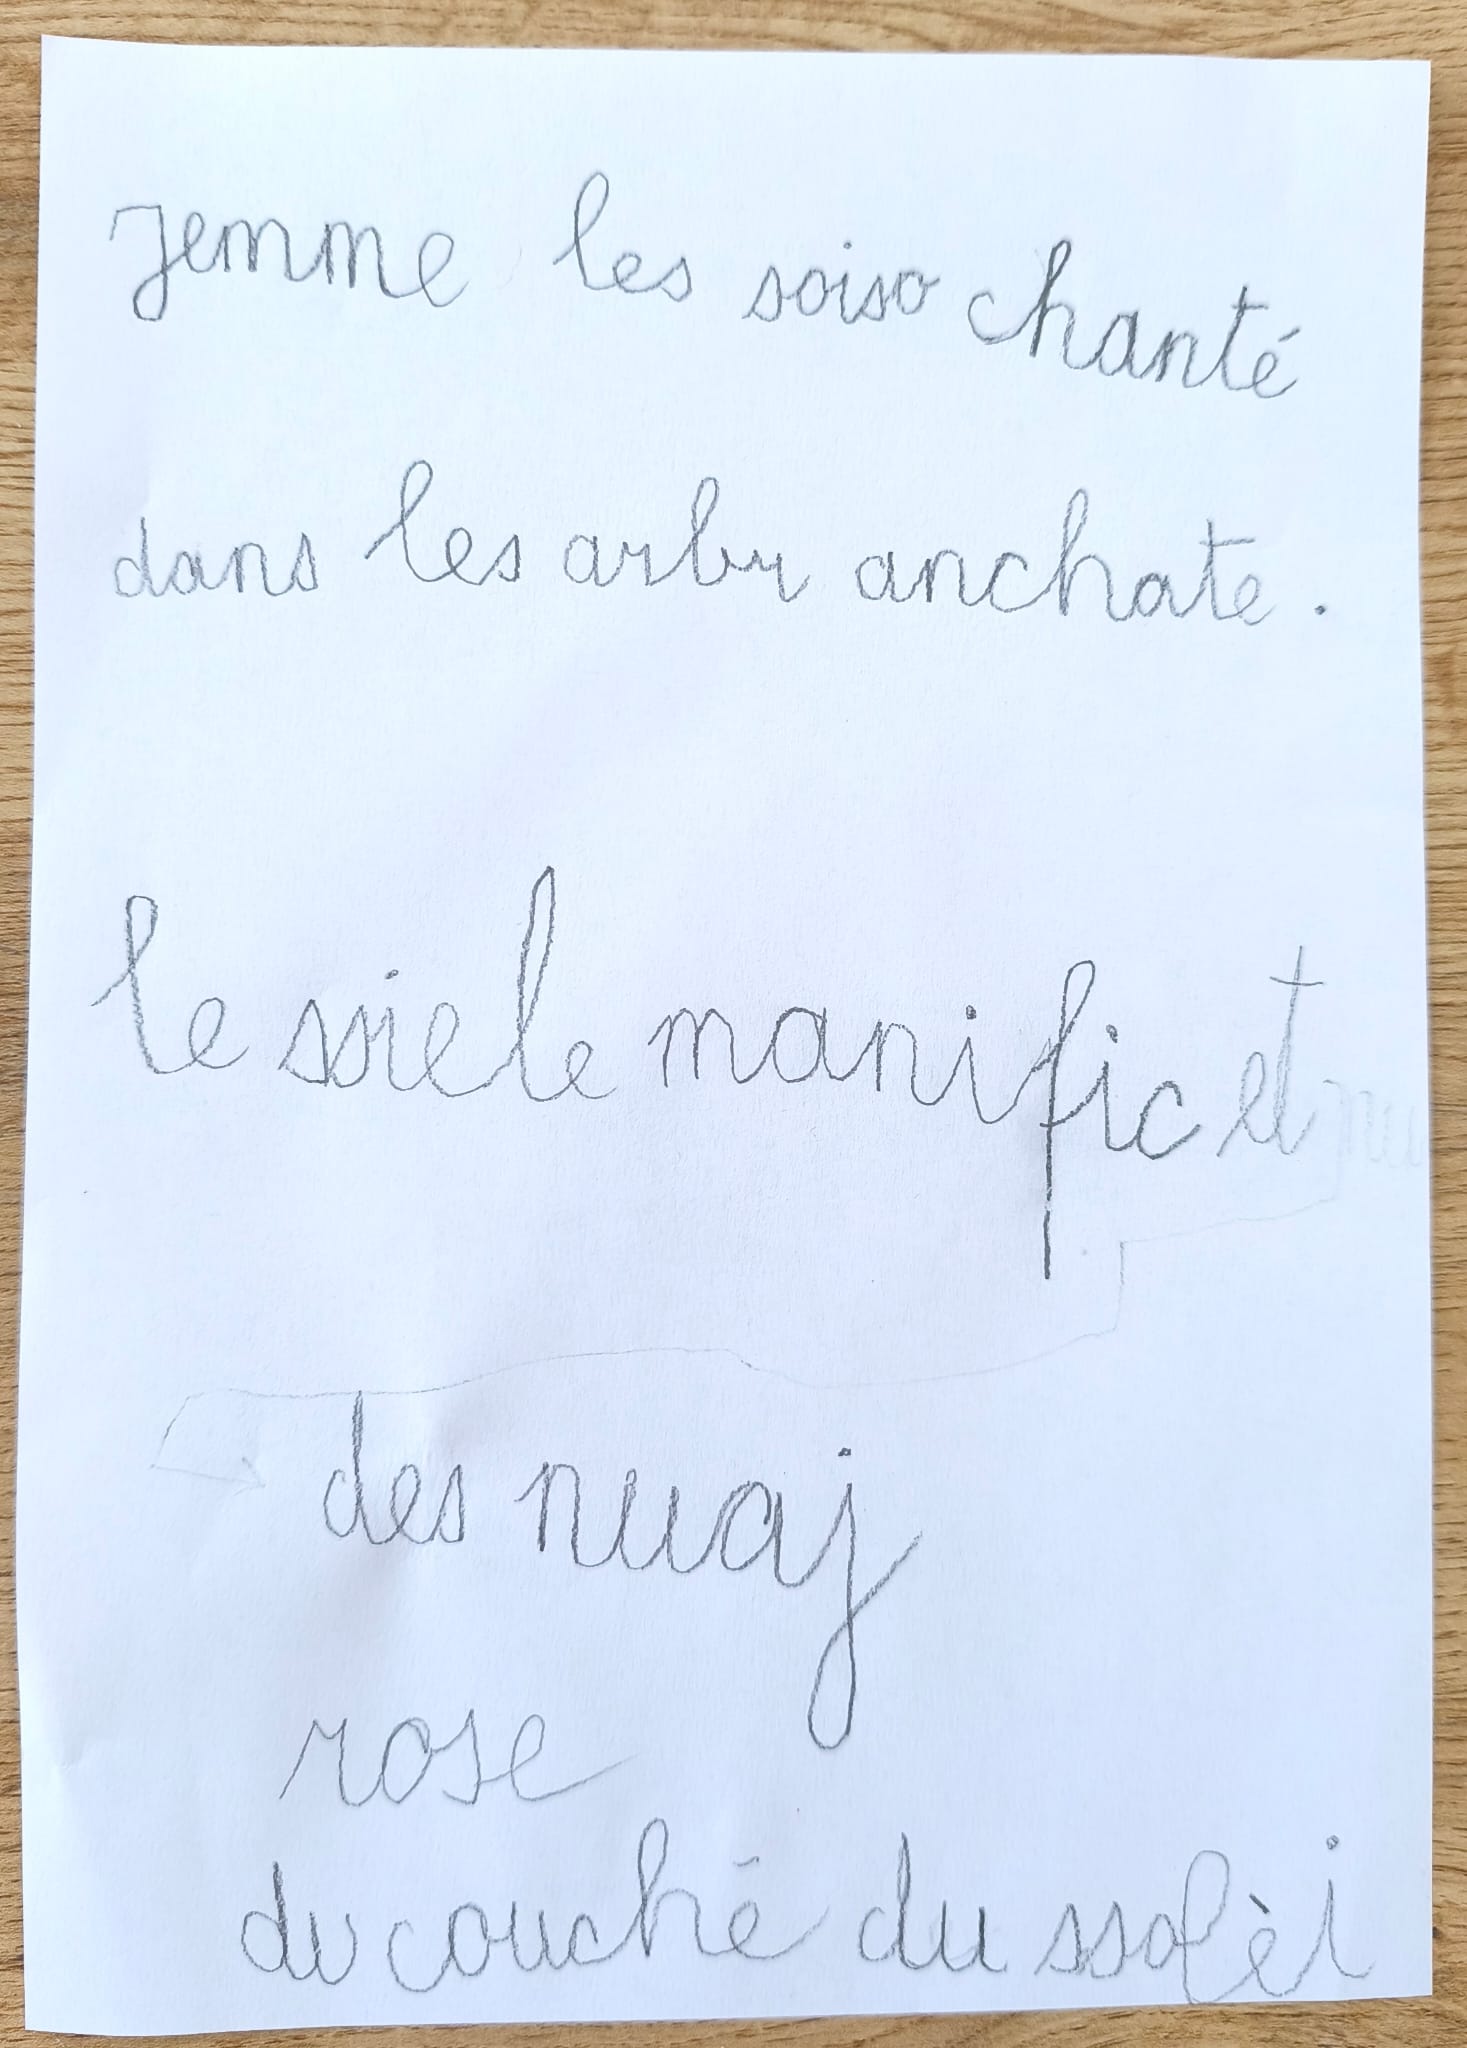 Jemme les soiso chanté
dans les arbr anchate.
le ssiele manific et
des nuaj
rose
du couché du ssolèi